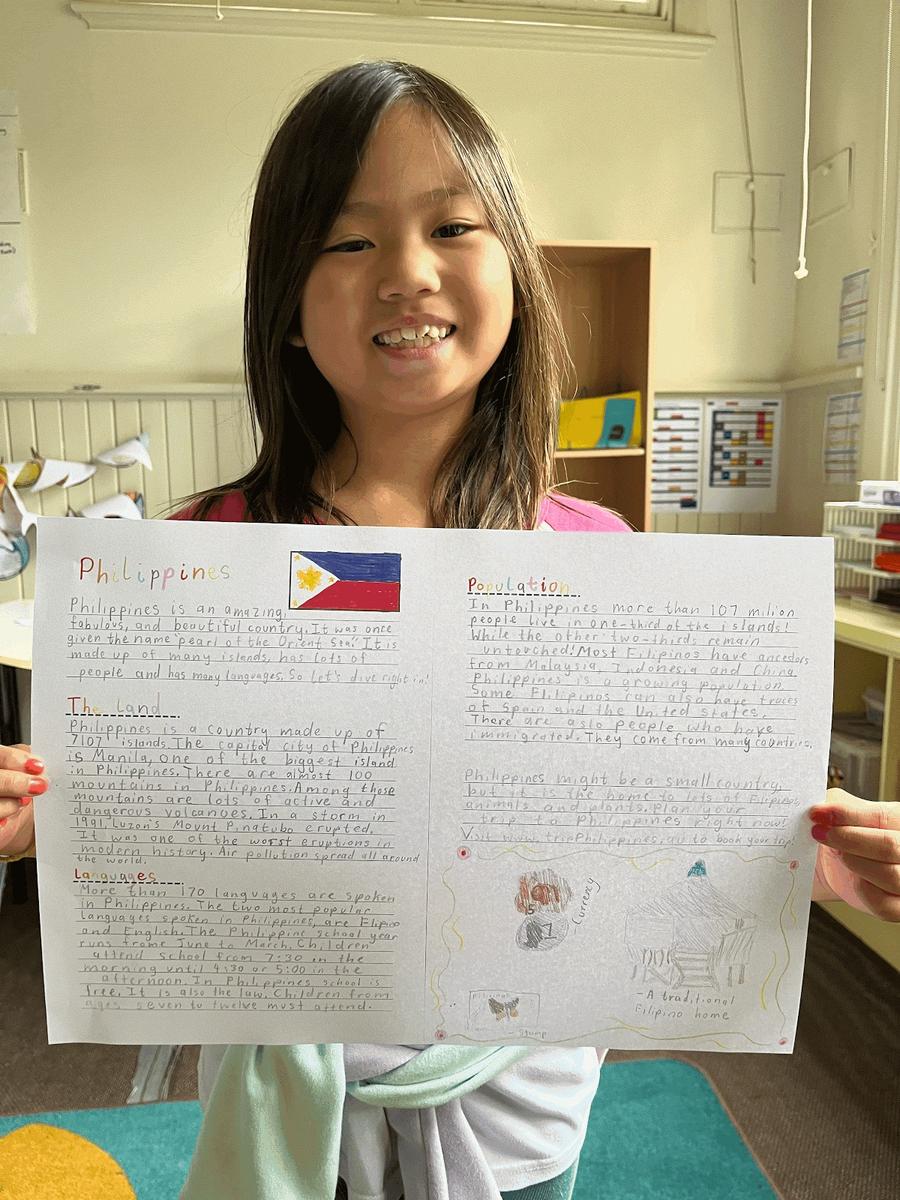 Philippines
Philippines is an amazing,
fabulous, and beautiful country. It was once
given the name 'pearl of the Orient Sea'. It is
made up of many islands, has lots of
people and has many languages. So let's dive right in!
The Land
Philippines is a country made up of
7107 islands. The capital city of Philippines
is Manila, one of the biggest island
in Philippines. There are almost 100
mountains in Philippines. Among those
mountains are lots of active and
dangerous volcanoes. In a storm in
1991, Luzon's Mount Pinatubo erupted.
It was one of the worst eruptions in
modern history. Air pollution spread all around
the world.
Languages
More than 170 languages are spoken
in Philippines. The two most popular
languages spoken in Philippines, are Flipino
and English. The Philippine school year
runs frome June to March. Children
attend school from 7:30 in the
morning until 4:30 or 5:00 in the
afternoon. In Philippines school is
free. It is also the law. Children from
ages seven to twelve must attend.
Population
In Philippines more than 107 milion
people live in one-third of the islands!
While the other two-thirds remain
untouched! Most Filipinos have ancestors
from Malaysia, Indonesia and China.
Philippines is a growing population.
Some Filipinos can also have traces
of Spain and the United States.
There are aslo people who have
immigrated. They come from many countries.
Philippines might be a small country,
but it is the home to lots of Filipinos,
animals and plants. Plan your
trip to Philippines right now!
Visit www.tripPhilippines.au to book your trip!
Currency
1
- A traditional
Filipino home
- Stamp